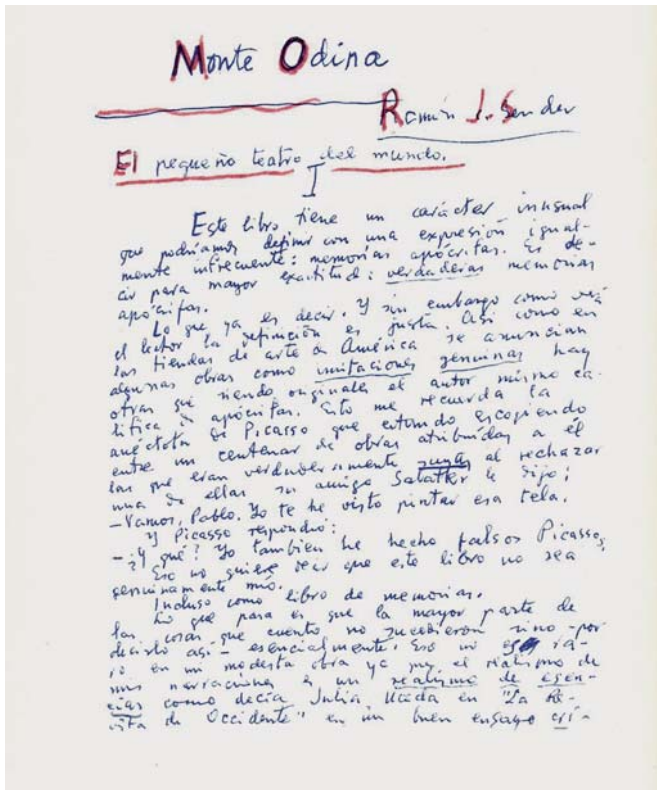 Monte Odina
Ramón J. Sender
El pequeño teatro del mundo.
I
Este libro tiene un carácter inusual
que podríamos definir con una expresión igual-
mente infrecuente: memorias apócrifas. Es de-
cir para mayor exactitud: verdaderas memorias
apócrifas.
Lo que ya es decir. Y sin embargo como verá
el lector la definición es justa. Así como en
las tiendas de arte de América se anuncian
algunas obras como imitaciones genuinas hay
otras que siendo originales el autor mismo ca-
lifica de apócrifas. Esto me recuerda la
anécdota de Picasso que estando escogiendo
entre un centenar de obras atribuidas a él
las que eran verdaderamente suyas al rechazar
una de ellas su amigo Sabatler le dijo:
—Vamos, Pablo. Yo te he visto pintar esa tela.
Y Picasso respondió:
—¿Y qué? Yo también he hecho falsos Picassos.
Eso no quiere decir que este libro no sea
genuinamente mío.
Incluso como libro de memorias.
Lo que pasa es que la mayor parte de
las cosas que cuento no sucedieron sino -por
decirlo así- esencialmente. Eso no es ra-
ro en mi modesta obra ya que el realismo de
mis narraciones es un realismo de esen-
cias como decía Julia Uceda en "La Re-
vista de Occidente" en un buen ensayo crí-